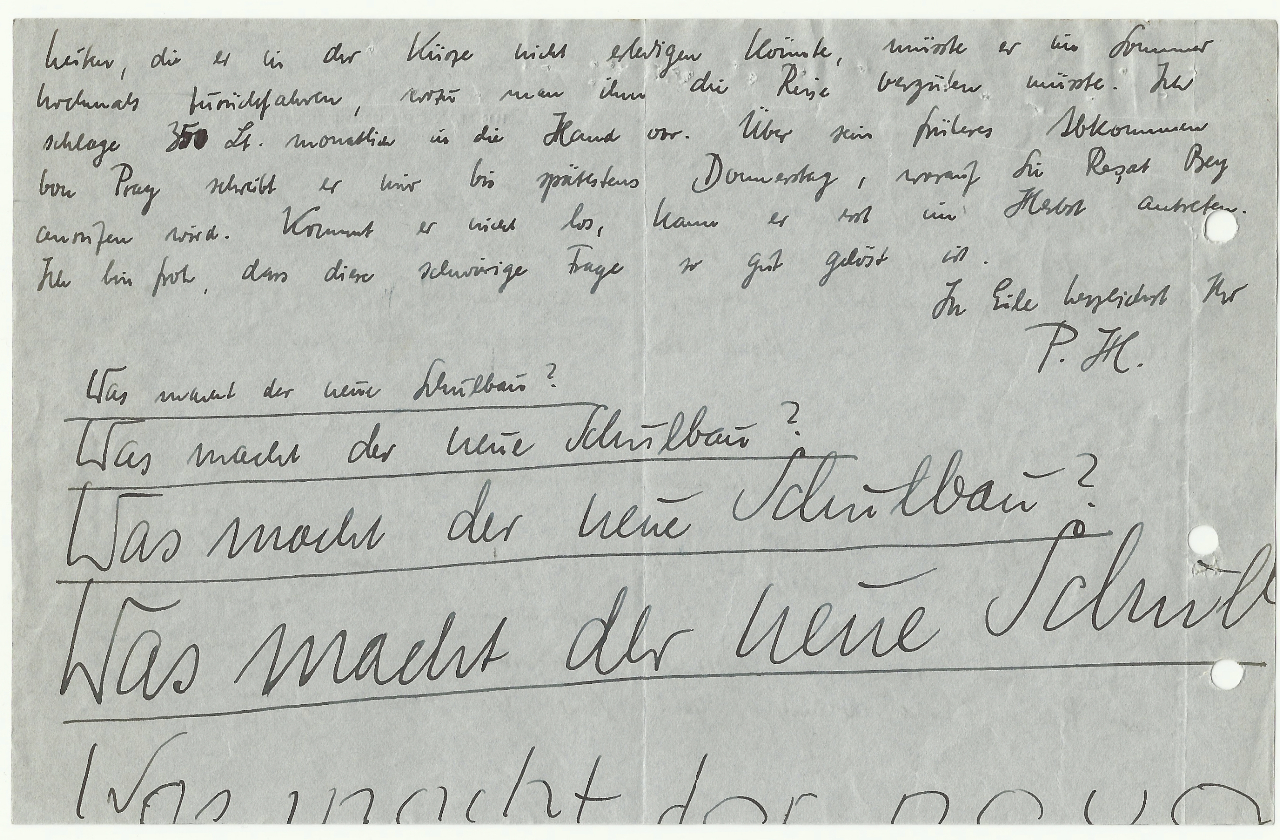 heiten, die er in der Kürze nicht erledigen könnte, müsste er im Sommer
nochmals zurückfahren, wozu man ihm die Reise vergüten müsste. Ich
schlage 350 Lt. monatlich in die Hand vor. Über sein früheres Abkommen
von Prag schreibt er mir bis spätestens Donnerstag, worauf Sie Reşat Bey
anrufen wird. Kommt er nicht los, kann er erst im Herbst antreten.
Ich bin froh, dass diese schwierige Frage so gut gelöst ist.
In Eile herzlichst Ihr
P. H.
Was macht der neue Schulbau?
Was macht der neue Schulbau?
Was macht der neue Schulbau?
Was macht der neue Schulb
Was macht der neue